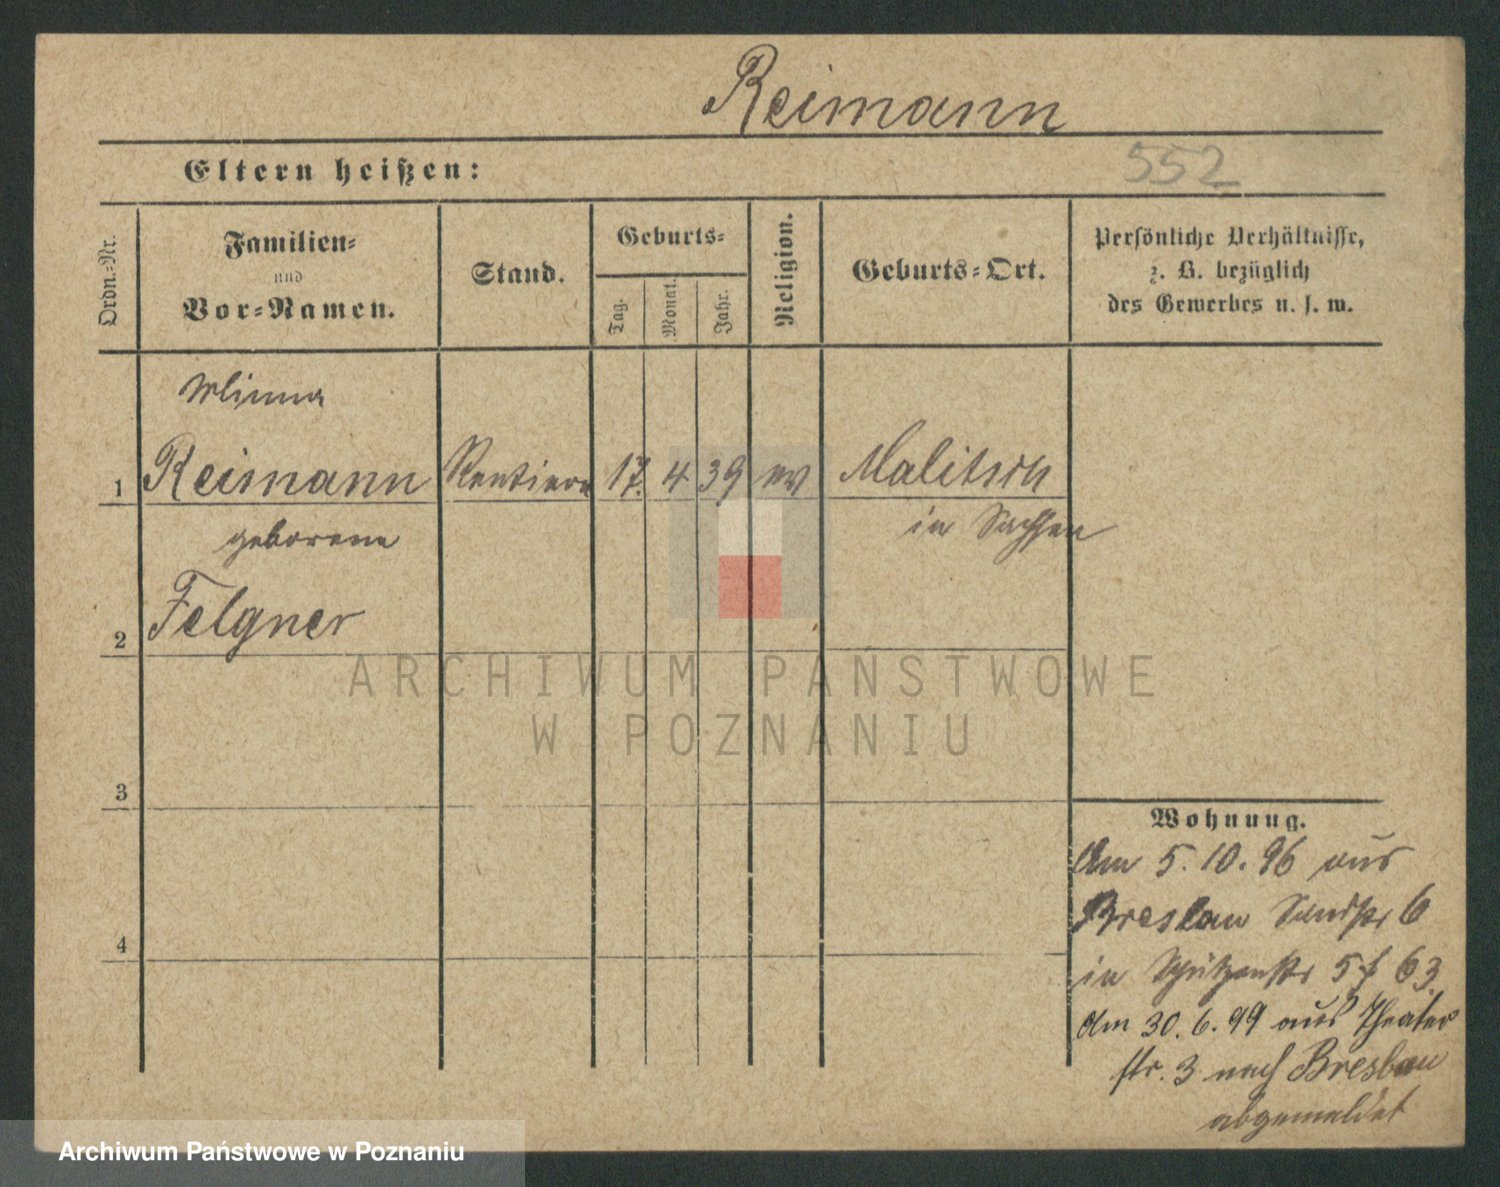 Reimann
Eltern heißen:
552
Ordn.-Nr.
Familien-
und
Vor-Namen.
Stand.
Geburts-
Tag.
Monat.
Jahr.
Religion.
Geburts-Ort.
Persönliche Verhältnisse,
z. B. bezüglich
des Gewerbes u. s. w.
Minna
1 Reimann Rentiere 17. 4 39 ev Malitsch
in Sachsen
geborene
2 Felgner
ARCHIWUM PAŃSTWOWE
W POZNANIU
3
Wohnung.
Am 5.10.96 aus
Breslau Sandstr 6
4
in Schützenstr 63
Am 30.6.99 aus Theater
str. 3 nach Breslau
abgemeldet
Archiwum Państwowe w Poznaniu